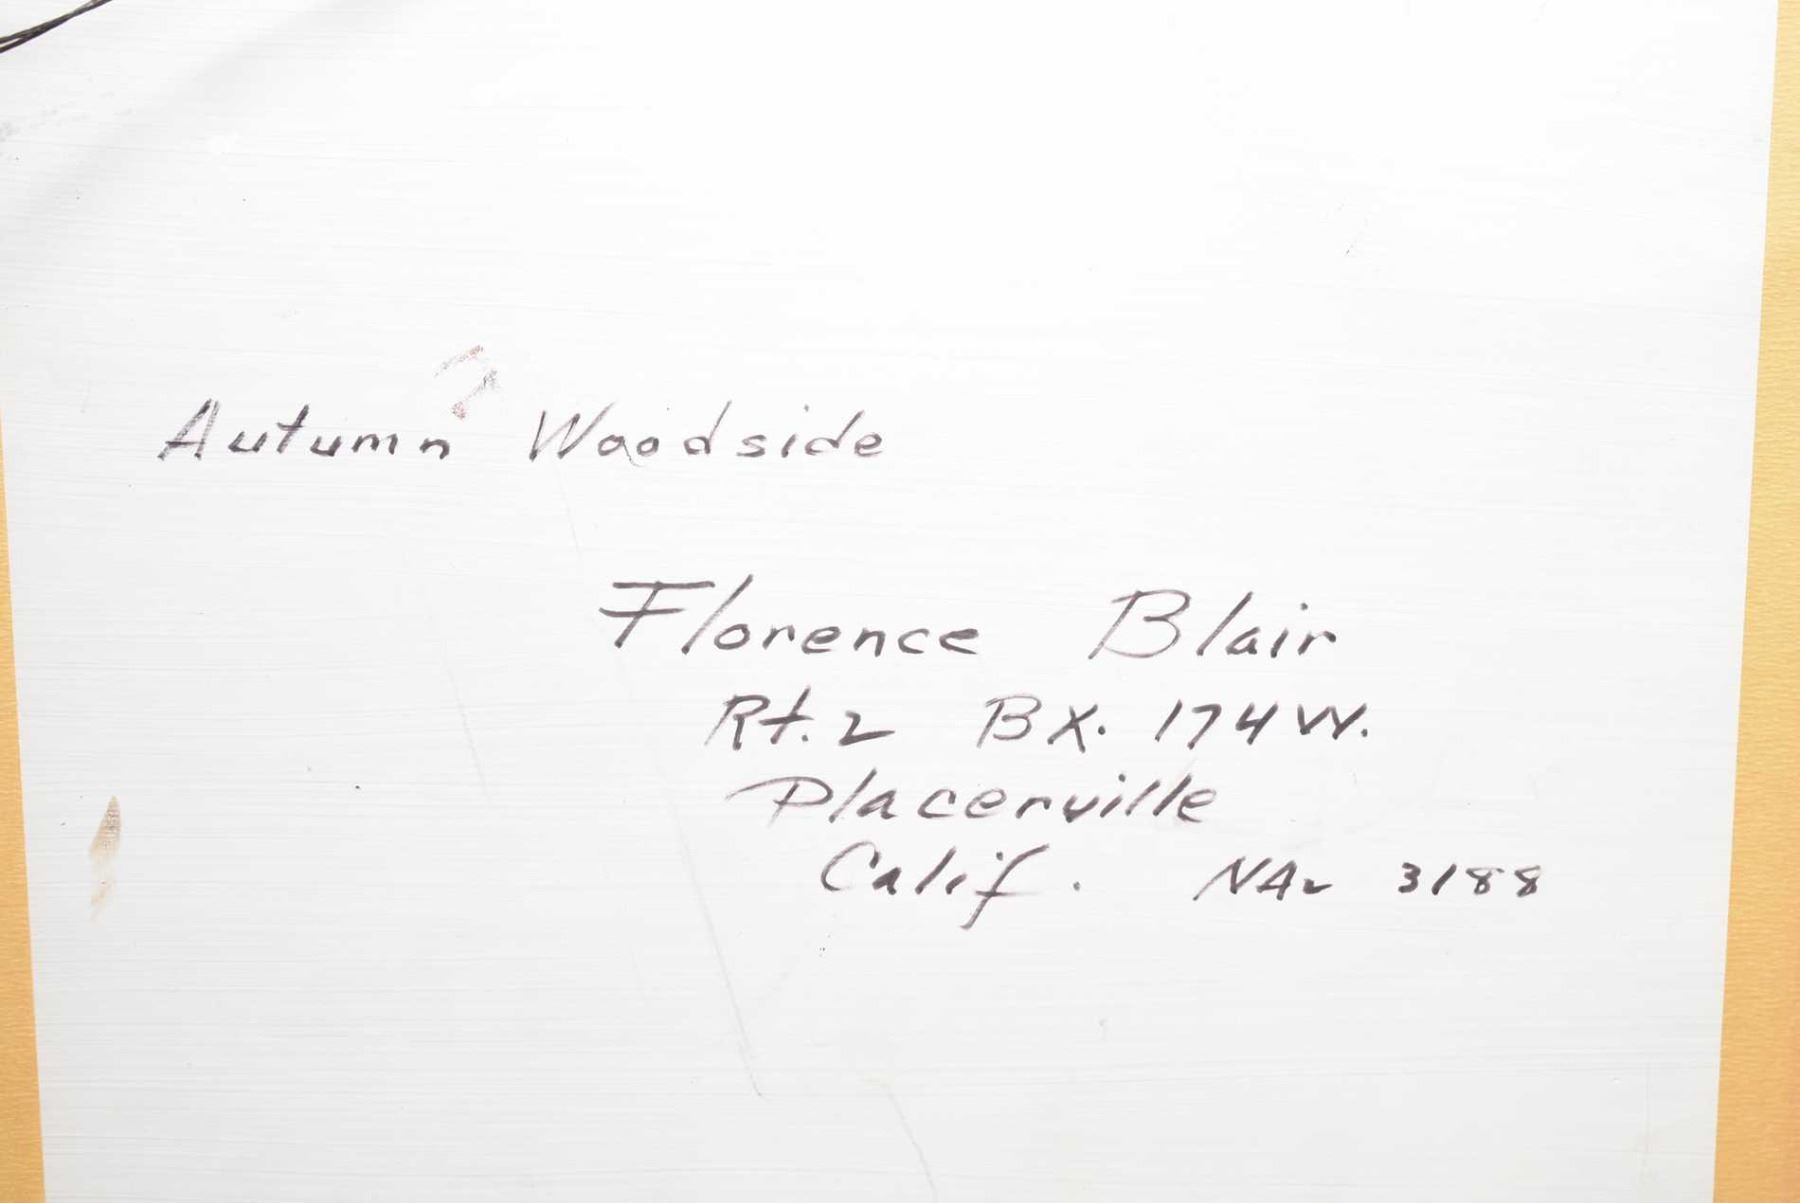 Autumn Woodside
Florence Blair
Rt. 2 BX. 174 W.
Placerville
Calif. NA2 3188